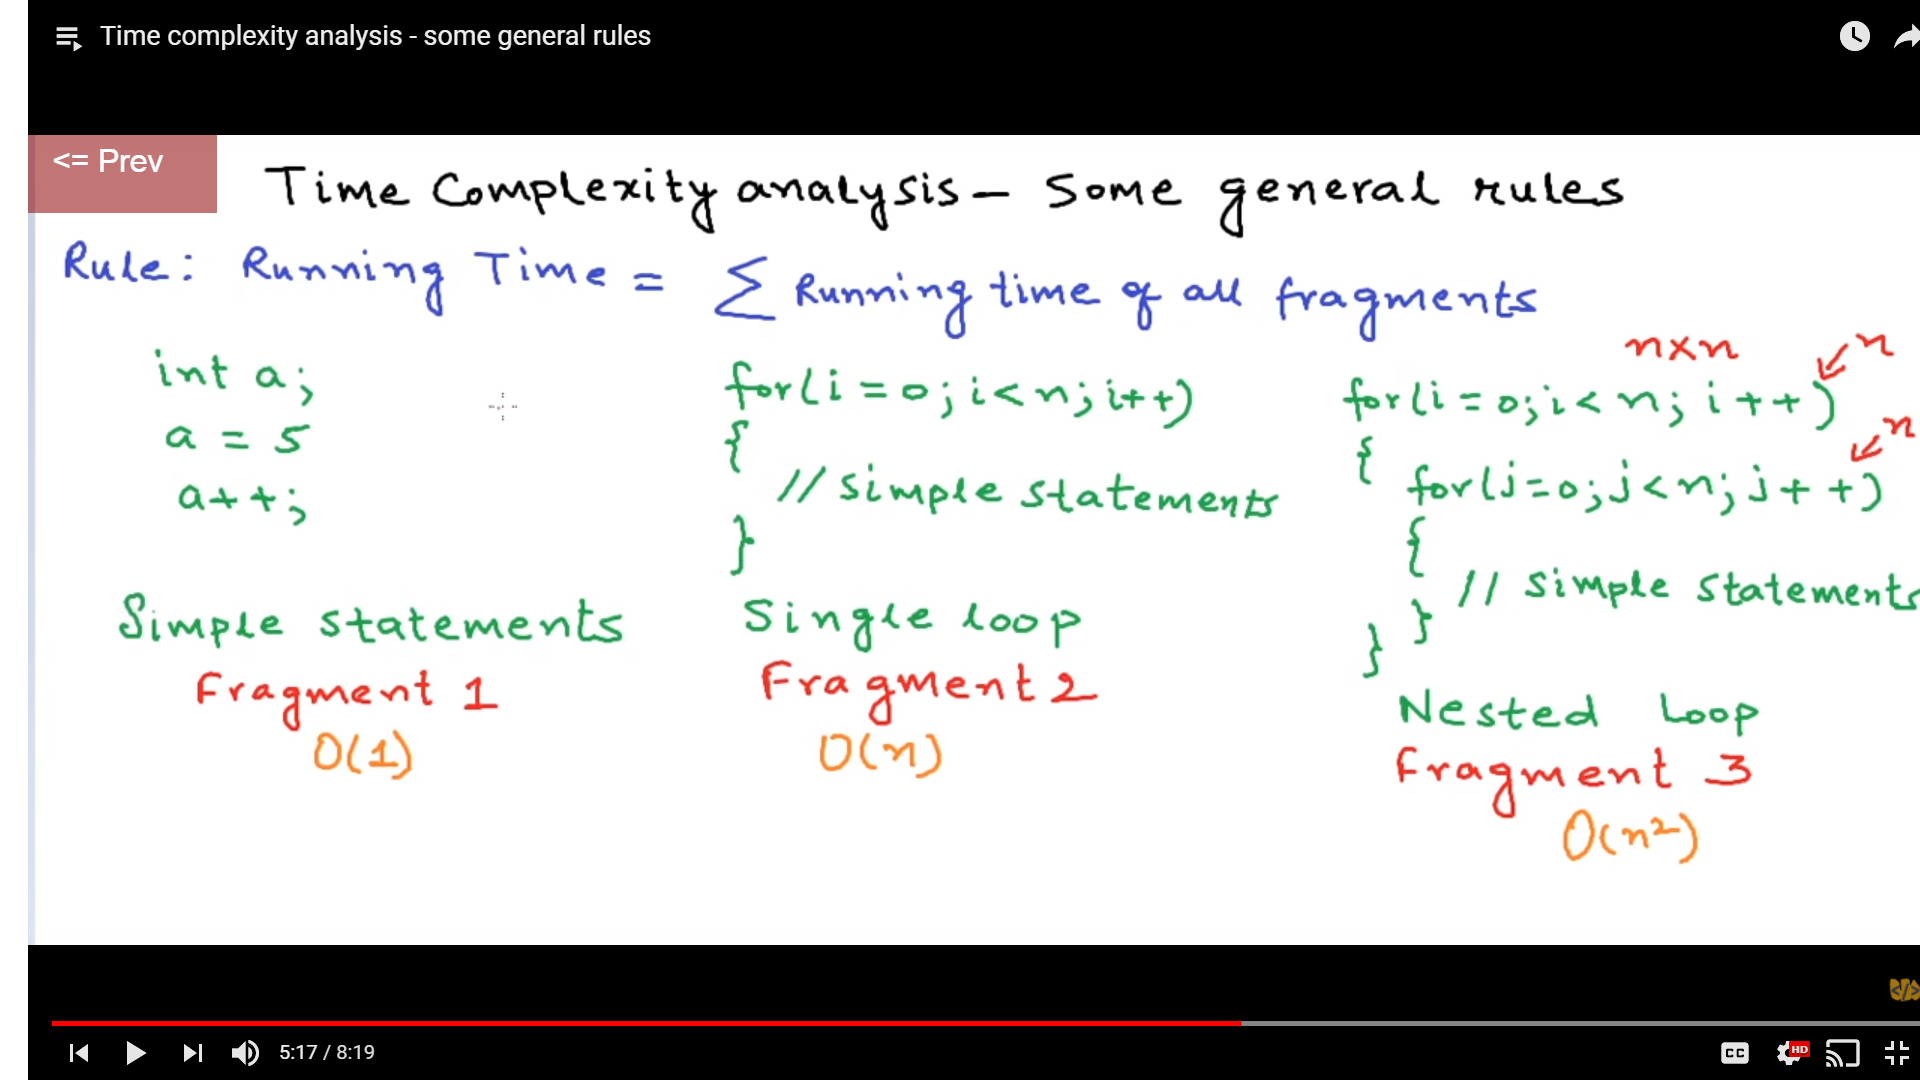 Time complexity analysis - some general rules
<= Prev
Time Complexity analysis – Some general rules
Rule: Running Time = ∑ Running time of all fragments
int a;
a = 5
a++;
Simple statements
Fragment 1
O(1)
for(i=0;i<n;i++)
{
// simple statements
}
Single loop
Fragment 2
O(n)
n×n
n
for(i=0;i<n;i++)
n
{
for(j=0;j<n;j++)
{
// simple statements
}
}
Nested Loop
Fragment 3
O(n²)
5:17 / 8:19
CC
HD